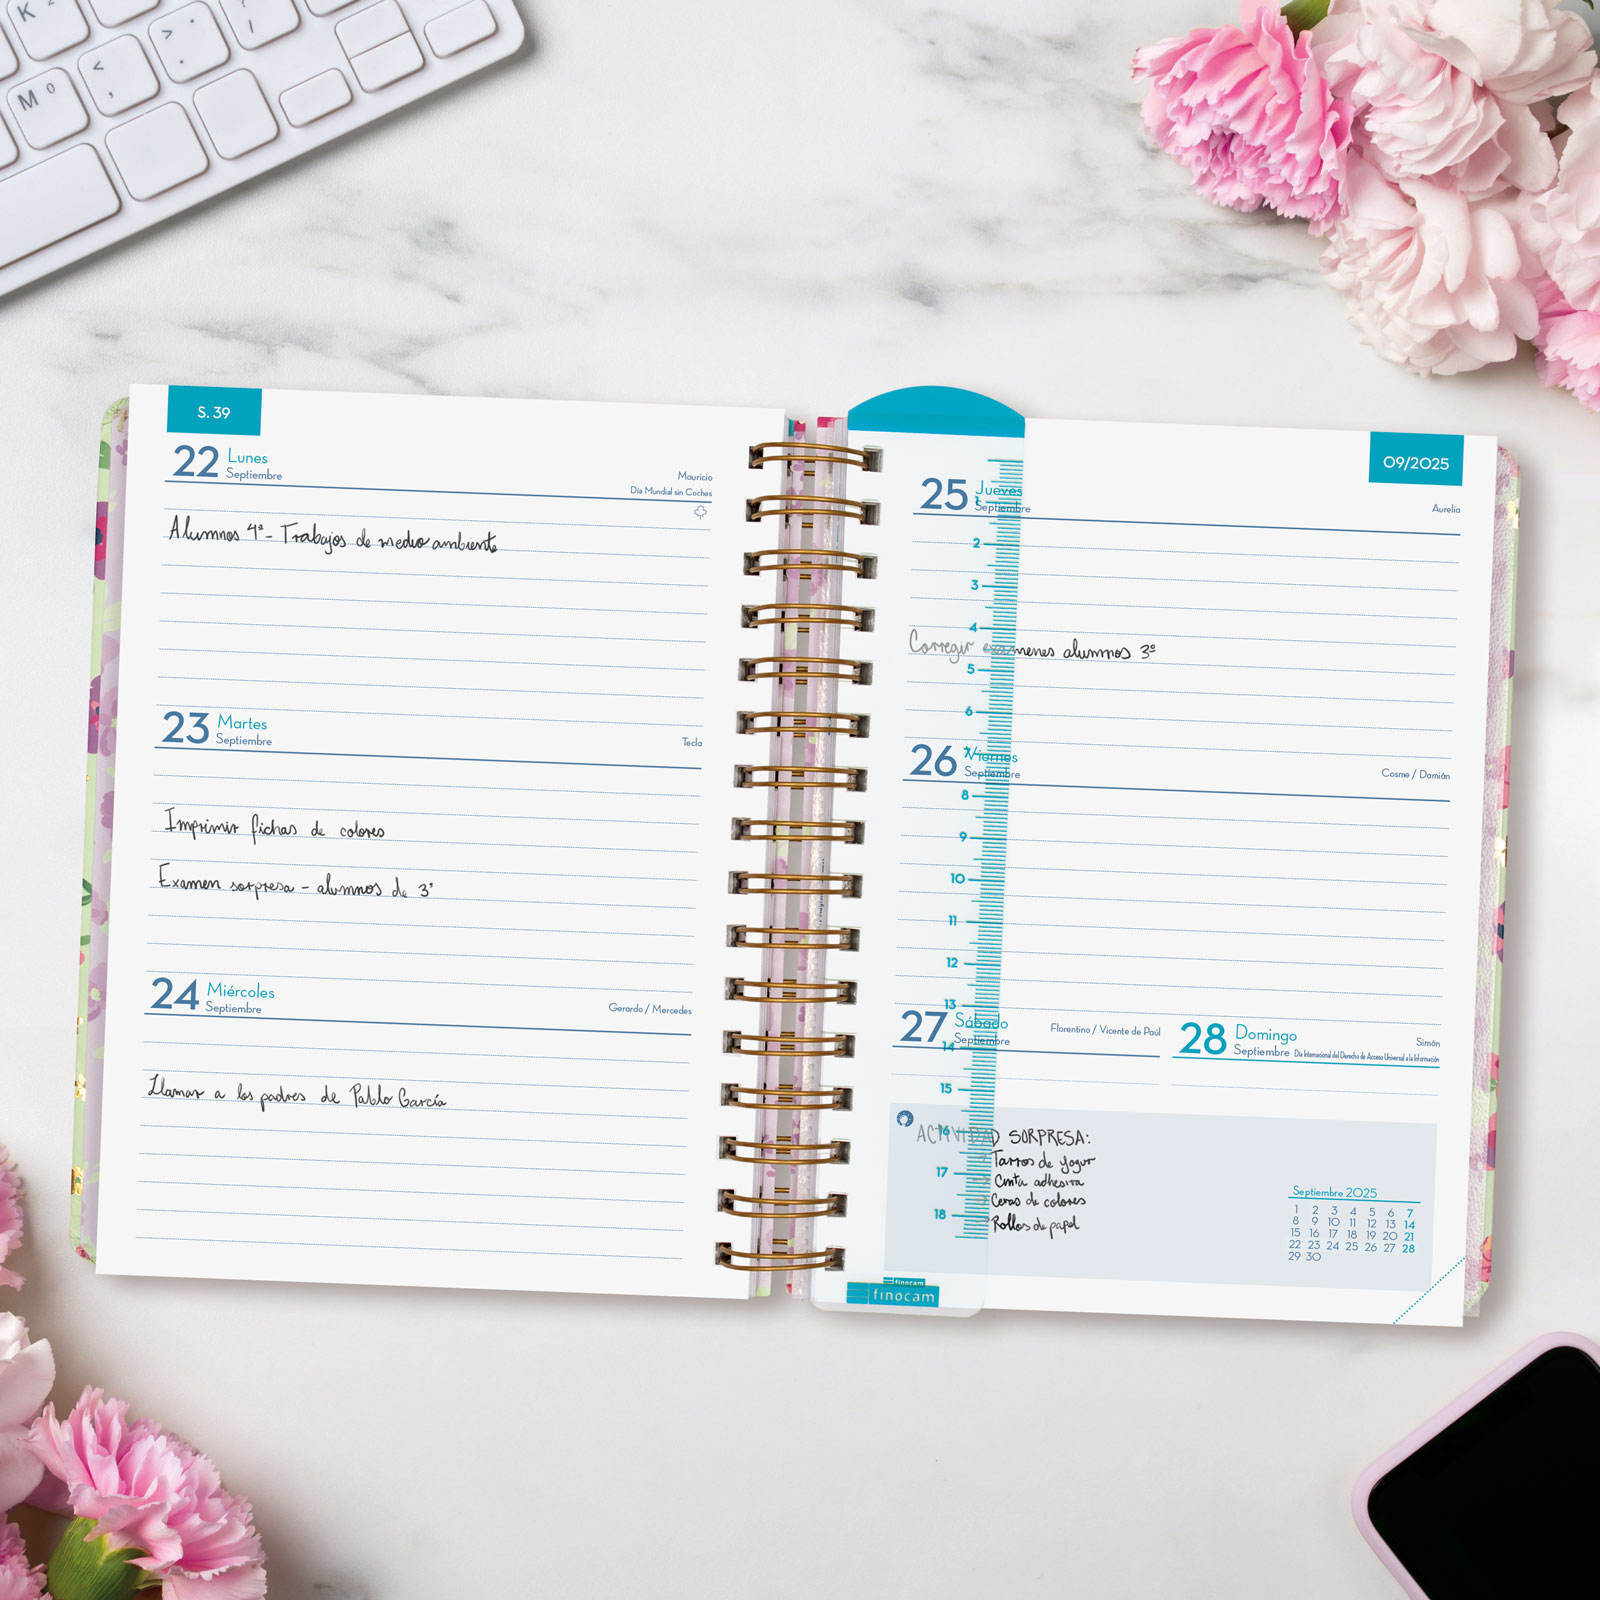 K
M º
S. 39
22 Lunes
Septiembre
Mauricio
Día Mundial sin Coches
Alumnos 4º - Trabajos de medio ambiente
23 Martes
Septiembre
Tecla
Imprimir fichas de colores
Examen sorpresa - alumnos de 3º
24 Miércoles
Septiembre
Gerardo / Mercedes
Llamar a los padres de Pablo García
09/2025
25 Jueves
Septiembre
Aurelia
Corregir exámenes alumnos 3º
26 Viernes
Septiembre
Cosme / Damián
27 Sábado
Septiembre
Florentino / Vicente de Paúl
28 Domingo
Septiembre
Simón
Día Internacional del Derecho de Acceso Universal a la Información
ACTIVIDAD SORPRESA:
Tarros de yogur
Cinta adhesiva
Ceras de colores
Rollos de papel
Septiembre 2025
1 2 3 4 5 6 7
8 9 10 11 12 13 14
15 16 17 18 19 20 21
22 23 24 25 26 27 28
29 30
2
3
4
5
6
7
8
9
10
11
12
13
14
15
16
17
18
finocam
finocam